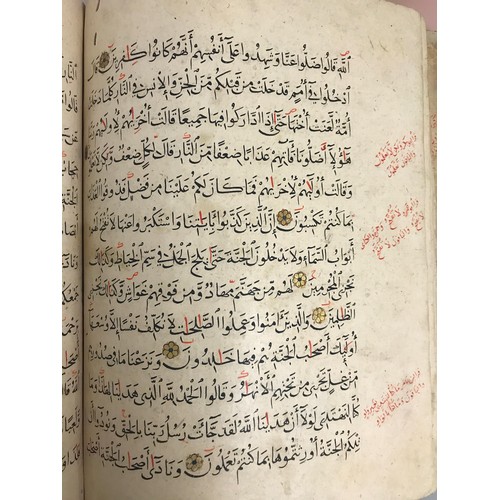 الله قالوا ضلوا عنا وشهدوا على أنفسهم أنهم كانوا كافرين قال
ادخلوا في أمم قد خلت من قبلكم من الجن والإنس في النار كلما دخلت
أمة لعنت أختها حتى إذا اداركوا فيها جميعا قالت أخريهم لأوليهم ربنا
هؤلاء أضلونا فآتهم عذابا ضعفا من النار قال لكل ضعف ولكن لا
وقالت أوليهم لأخريهم فما كان لكم علينا من فضل فذوقوا العذاب
بما كنتم تكسبون إن الذين كذبوا بآيٰتنا واستكبروا عنها لا تفتح لهم
أبواب السماء ولا يدخلون الجنة حتى يلج الجمل في سم الخياط وكذلك
نجزي المجرمين لهم من جهنم مهاد ومن فوقهم غواش وكذلك نجزي
الظلمين والذين آمنوا وعملوا الصالحات لا نكلف نفسا إلا وسعها
أولئك أصحاب الجنة هم فيها خالدون ونزعنا ما في صدورهم
من غل تجري من تحتهم الأنهار وقالوا الحمد لله الذي هدىنا لهذا وما
كنا لنهتدي لولا أن هدىنا الله لقد جاءت رسل ربنا بالحق ونودوا أن
تلكم الجنة أورثتموها بما كنتم تعملون ونادى أصحاب الجنة